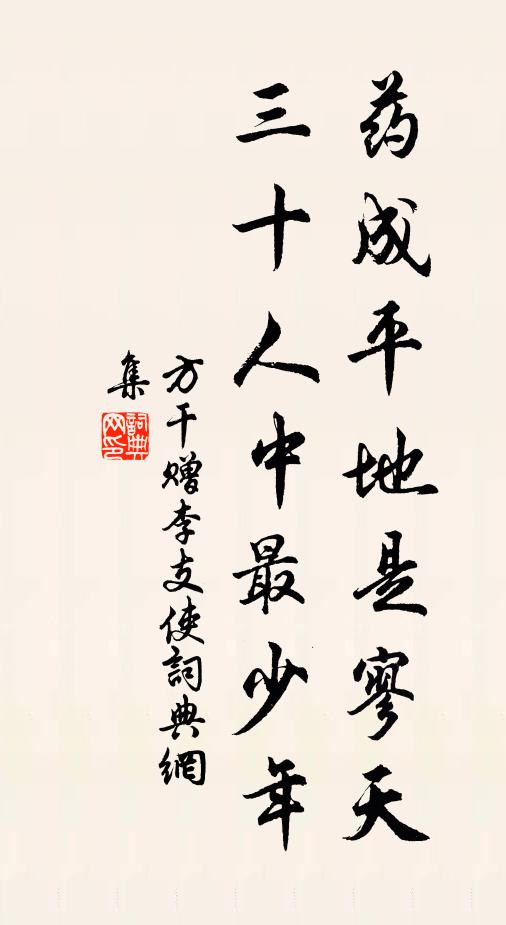 药成平地是寥天
三十人中最少年
方干赠李支使詞典網
集
詞典
网印